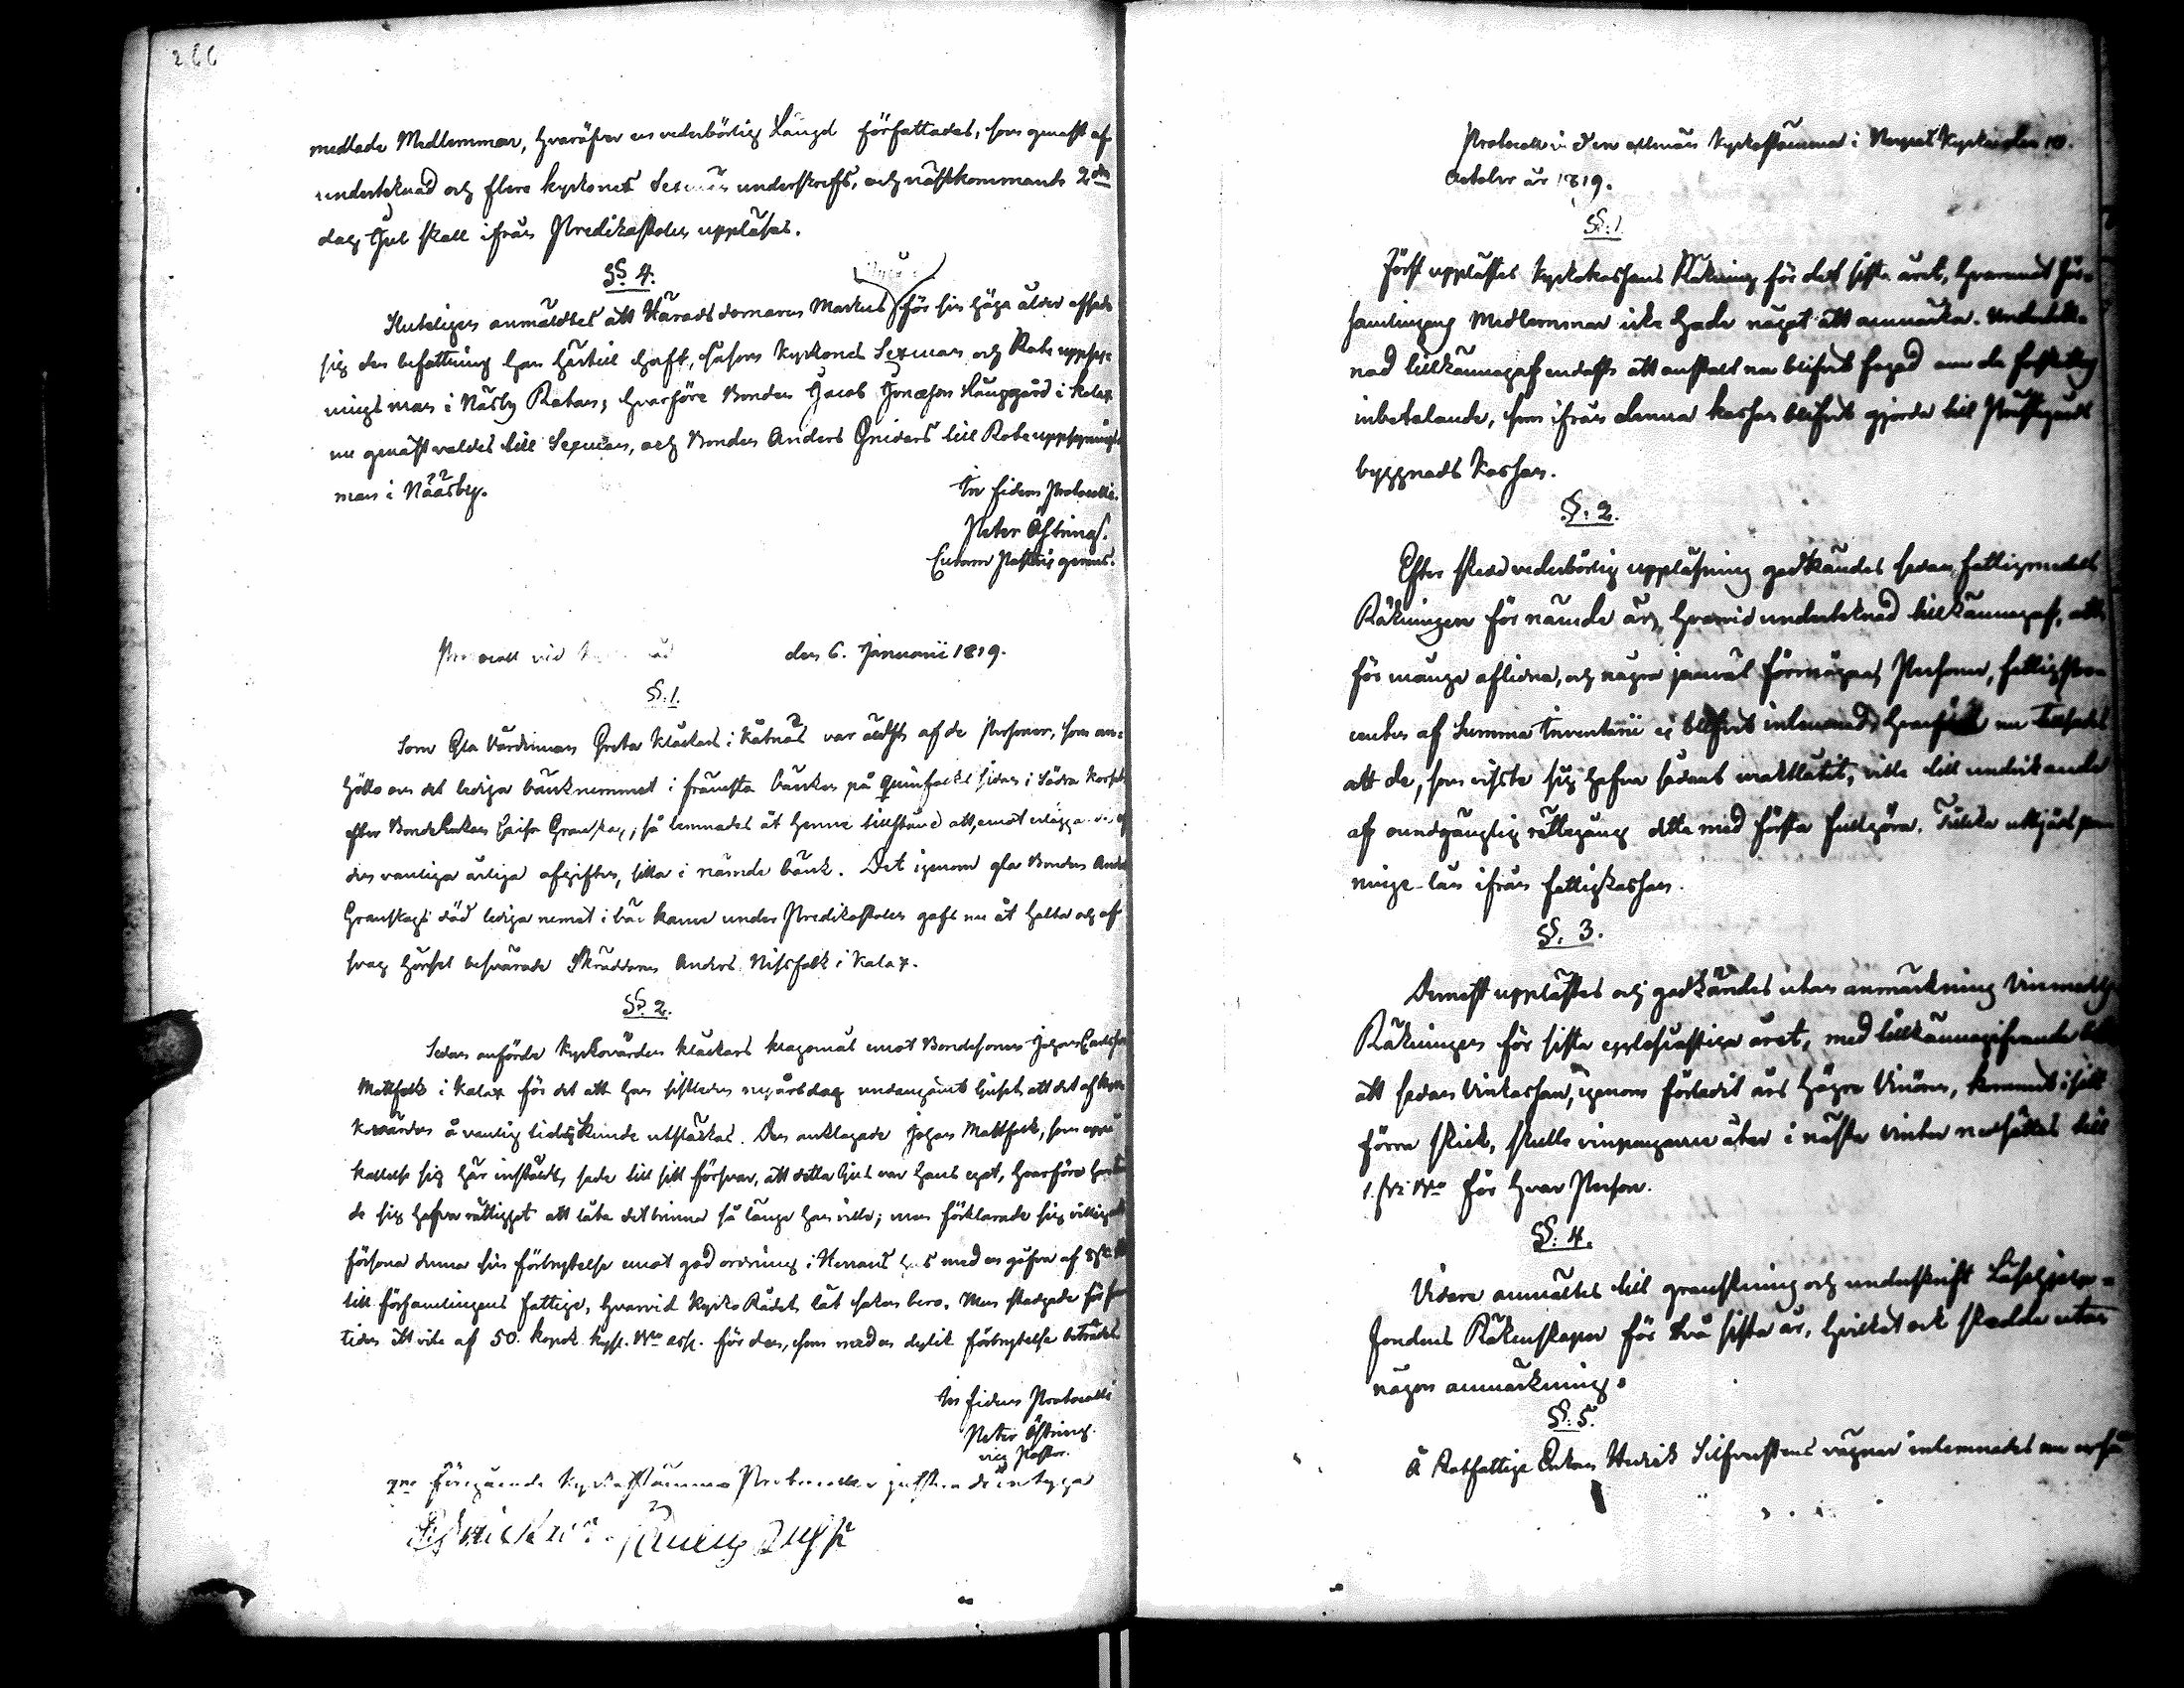 266
medlade Medlemmar, hvaröfver en vederbörlig Längd författades, som genast af
undertecknad och flere kyrkones Sexmän underskrefs, och nästkommande 2dra
dag Jul skall ifrån Predikstolen uppläsas.
§§ 4.
Slutligen anmäldtes att Häradsdomaren Markus för sin höga ålder afsade
sig den befattning han härtill haft, såsom Kyrkones Sexman och Rote uppsy-
ningsman i Näsby Rotan; hvarföre Bonden Jacob Jonasson Skuggård i Kalax
nu genast valdes till Sexman, och Bonden Anders Gniders till Roteuppsynings
man i Näasby.
In fidem Protocolli.
Peter Östring.
Curam Pastoris gerens.
vid den 6. Januarii 1819.
§.1.
Som Gla Värdinnan Greta Klockars i Kåtnäs var äldst af de Personer, som an-
höllo om det lediga bänkrummet i främsta bänken på Quinfolks sidan i Södra korset
efter BondeEnkan Caisa Granskog, så lemnades åt henne tillstånd att, emot erläggande af
den vanliga årliga afgiften, sitta i nämde bänk. Det igenom gla Bonden And
Granskogs död lediga rumet i bänkarne under Predikstolen gafs nu åt halta och af
svag hörsel besvärade Skräddaren Anders Nissfolk i Kalax.
§§ 2.
Sedan anförde Kyrkovärden Klockars klagomål emot Bondesonen Johan Carlsson
Mattfolk i Kalax för det att han sistleden nyårsdag undangömt ljuset, att det af Kyr
kovärden å vanlig tid ej kunde utsläckas. Den anklagade Johan Mattfolk, som uppå
kallelse sig här inställt, sade till sitt försvar, att detta ljus var hans eget, hvarföre han
de sig hafva rättighet att låta det brinna så länge han ville; men förklarade sig villig att
försona denna sin förbrytelse emot god ordning i Herrans hus med en gåfva af
till församlingens fattige, hvarvid KyrkoRådet lät saken bero. Men stadgade för fram
tiden ett vite af 50. kopek. Ryss. Bco ass. för den, som med en dylik förbrytelse beträdes.
In fidem Protocolli
Peter Östring.
vice Pastor.
föregående Kyrkostämmo Protocoller justerade intygar
Protocoll i den allmän Kyrkostämma i Nerpes Kyrka den 10.
October år 1819.
§§.1.
Först upplästes Kyrkokassans Räkning för det sista året, hvaremot För-
samlingens Medlemmar icke hade något att anmärka. Underteck-
nad tillkännagaf endast att anstalt nu blifvit fogad om de förskotts
inbetalande, som ifrån denna kassan blifvit gjorde till Prästgårds
byggnads Kassan.
§. 2.
Efter skedd vederbörlig uppläsning godkändes sedan fattigmedels
Räkningen för nämde år, hvarvid undertecknad tillkännagaf, att
för många aflidna, och några jemväl förmögna Personer, fattigpro-
centen af Summa Inventarii ej blifvit inlemnad, hvarföre nu
att de, som visste sig hafva sådant uraktlåtit, ville till undvikande
af oundgänglig rättegång detta med första fullgöra. utgjöds pen
ninge-lån ifrån fattigkassan.
§. 3.
Dernäst upplästes och godkändes utan anmärkning Vinmedels
Räkningen för sista ecclesiastiga året, med tillkännagifvande
att sedan Vinkassan, igenom förledit års högre Vinören, kommit i sitt
förra skick, skulle vinpengarne åter i nästa vinter nedsättas till
1. för hvar Person.
§. 4.
Vidare anmältes till granskning och underskrift Låsehjelps-
fondens Räkenskaper för två sista år, hvilket ock skedde utan
någon anmärkning.
§. 5.
Å Rotfattige Enkan Hedvik Silfverstens vägnar inlemnades en